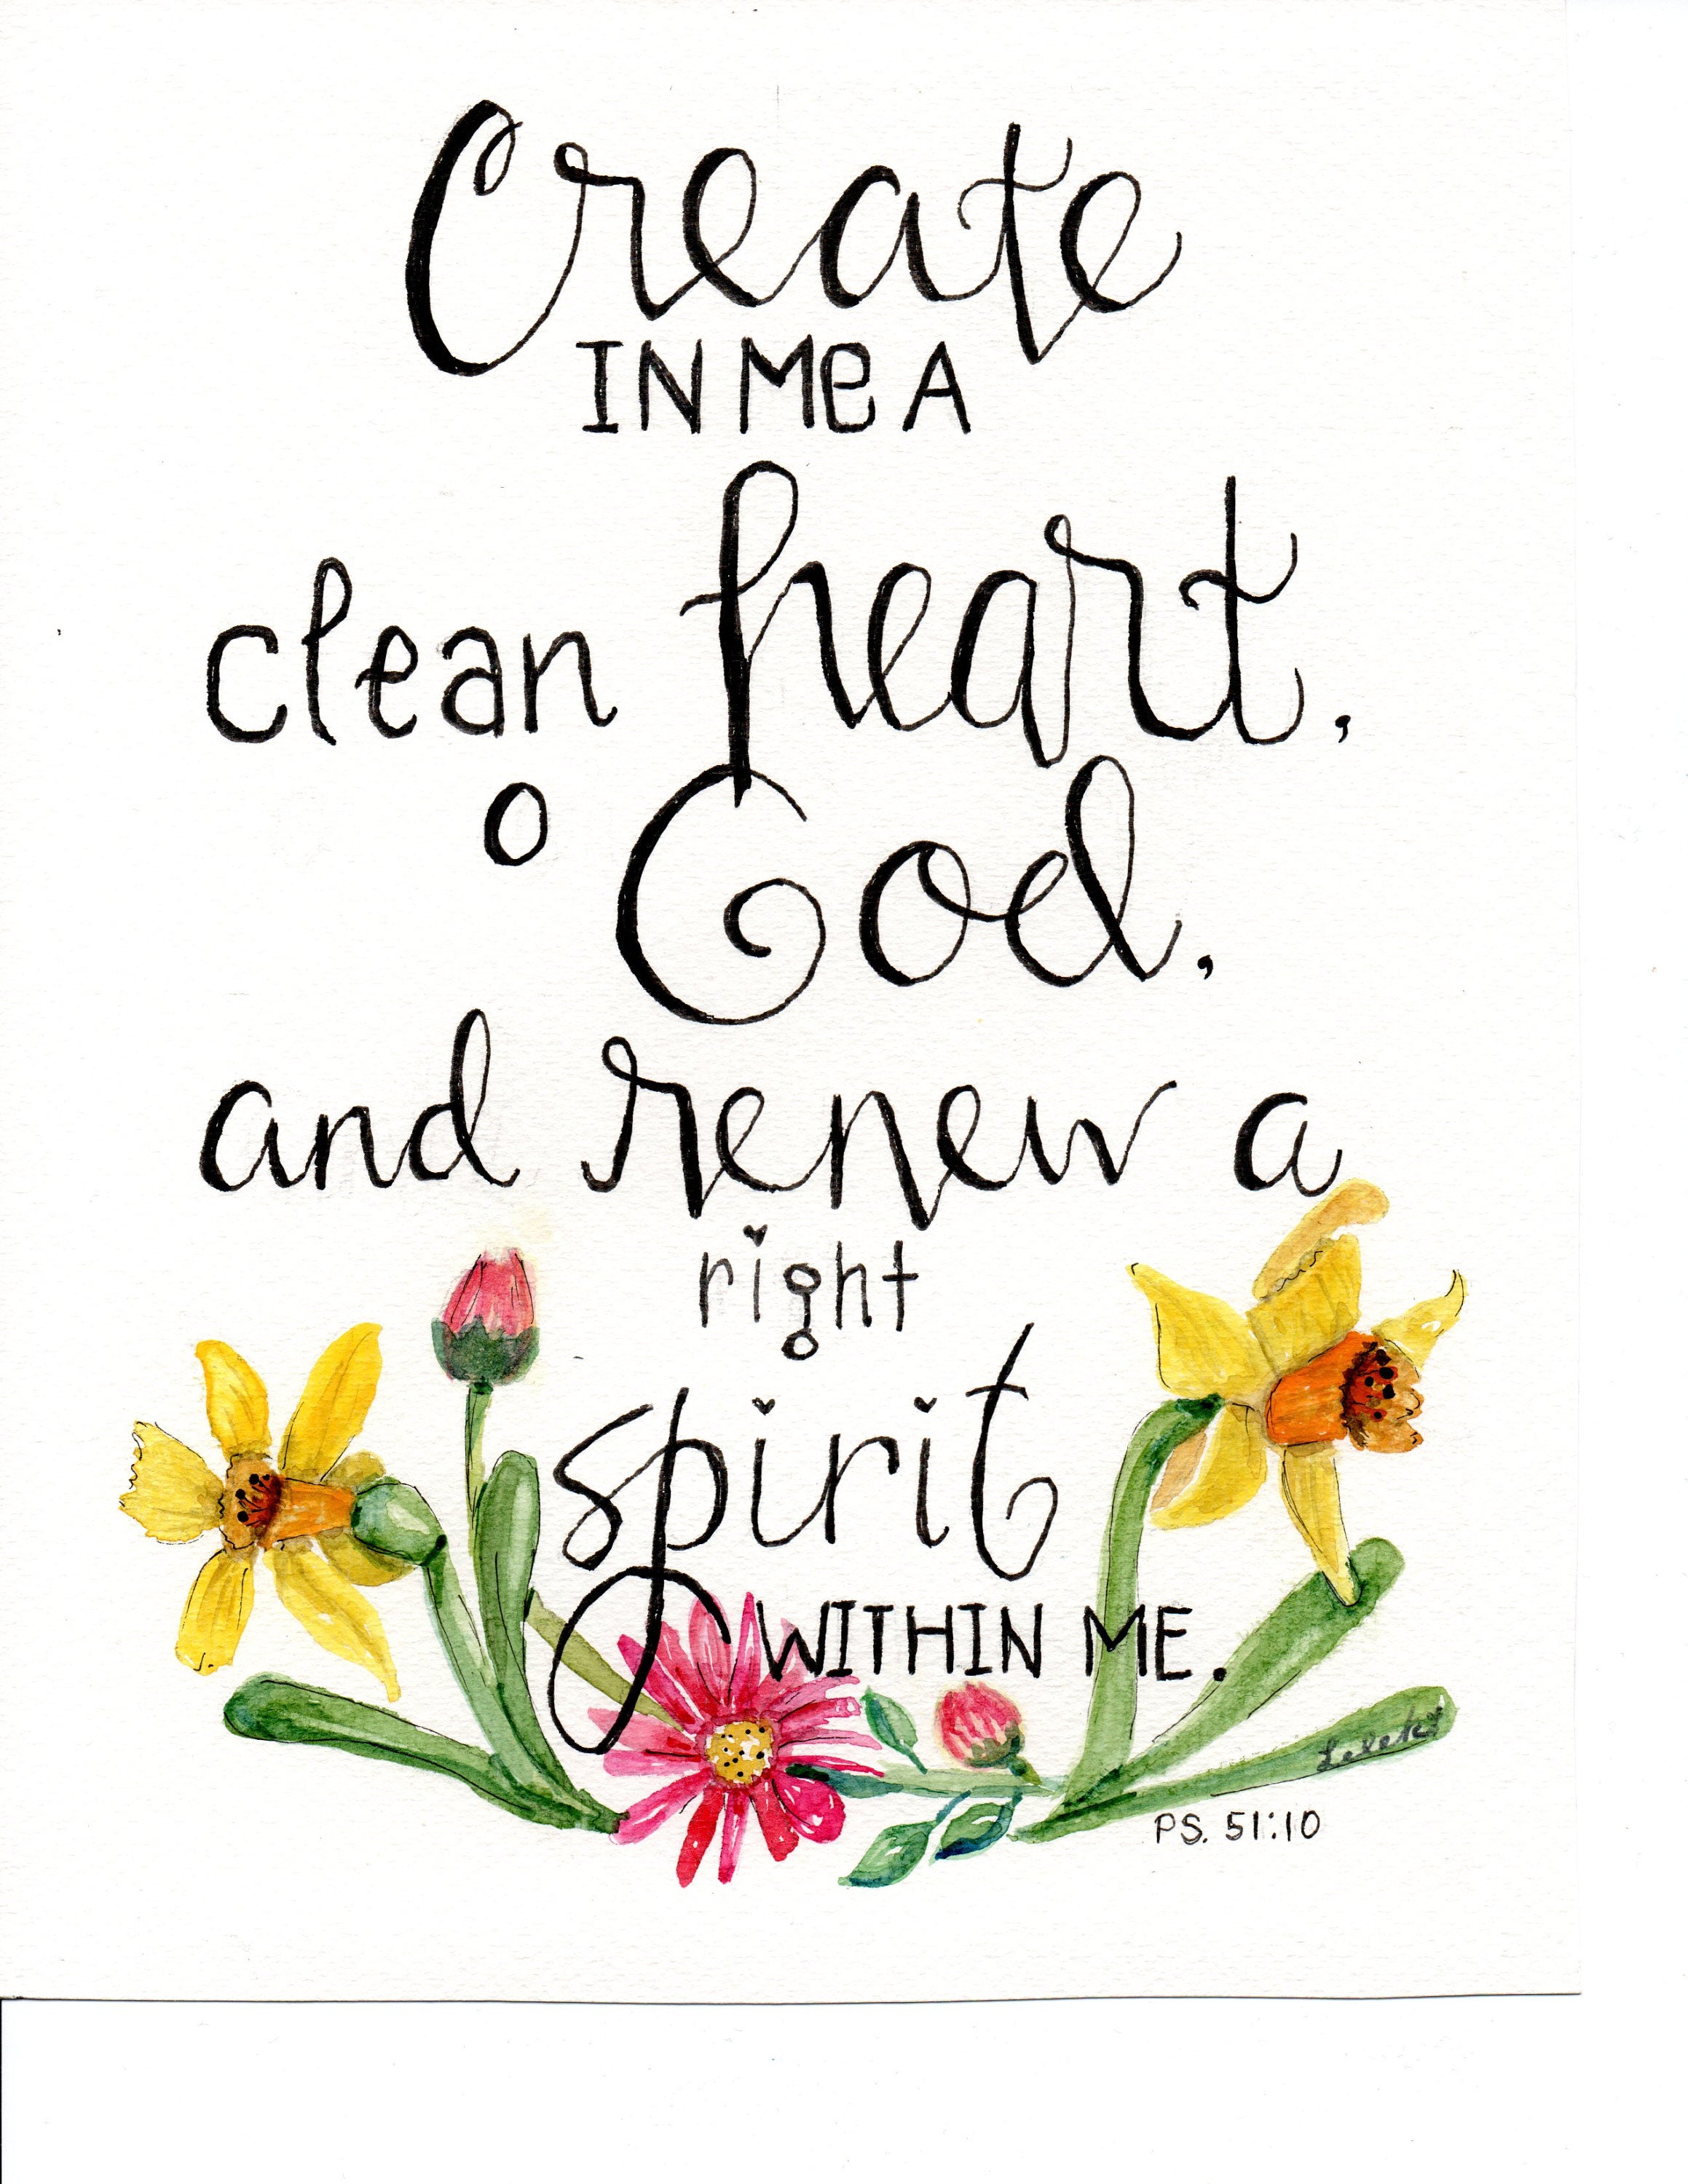 Create
IN Me A
clean heart,
o God,
and renew a
right
spirit
WITHIN ME.
PS. 51:10